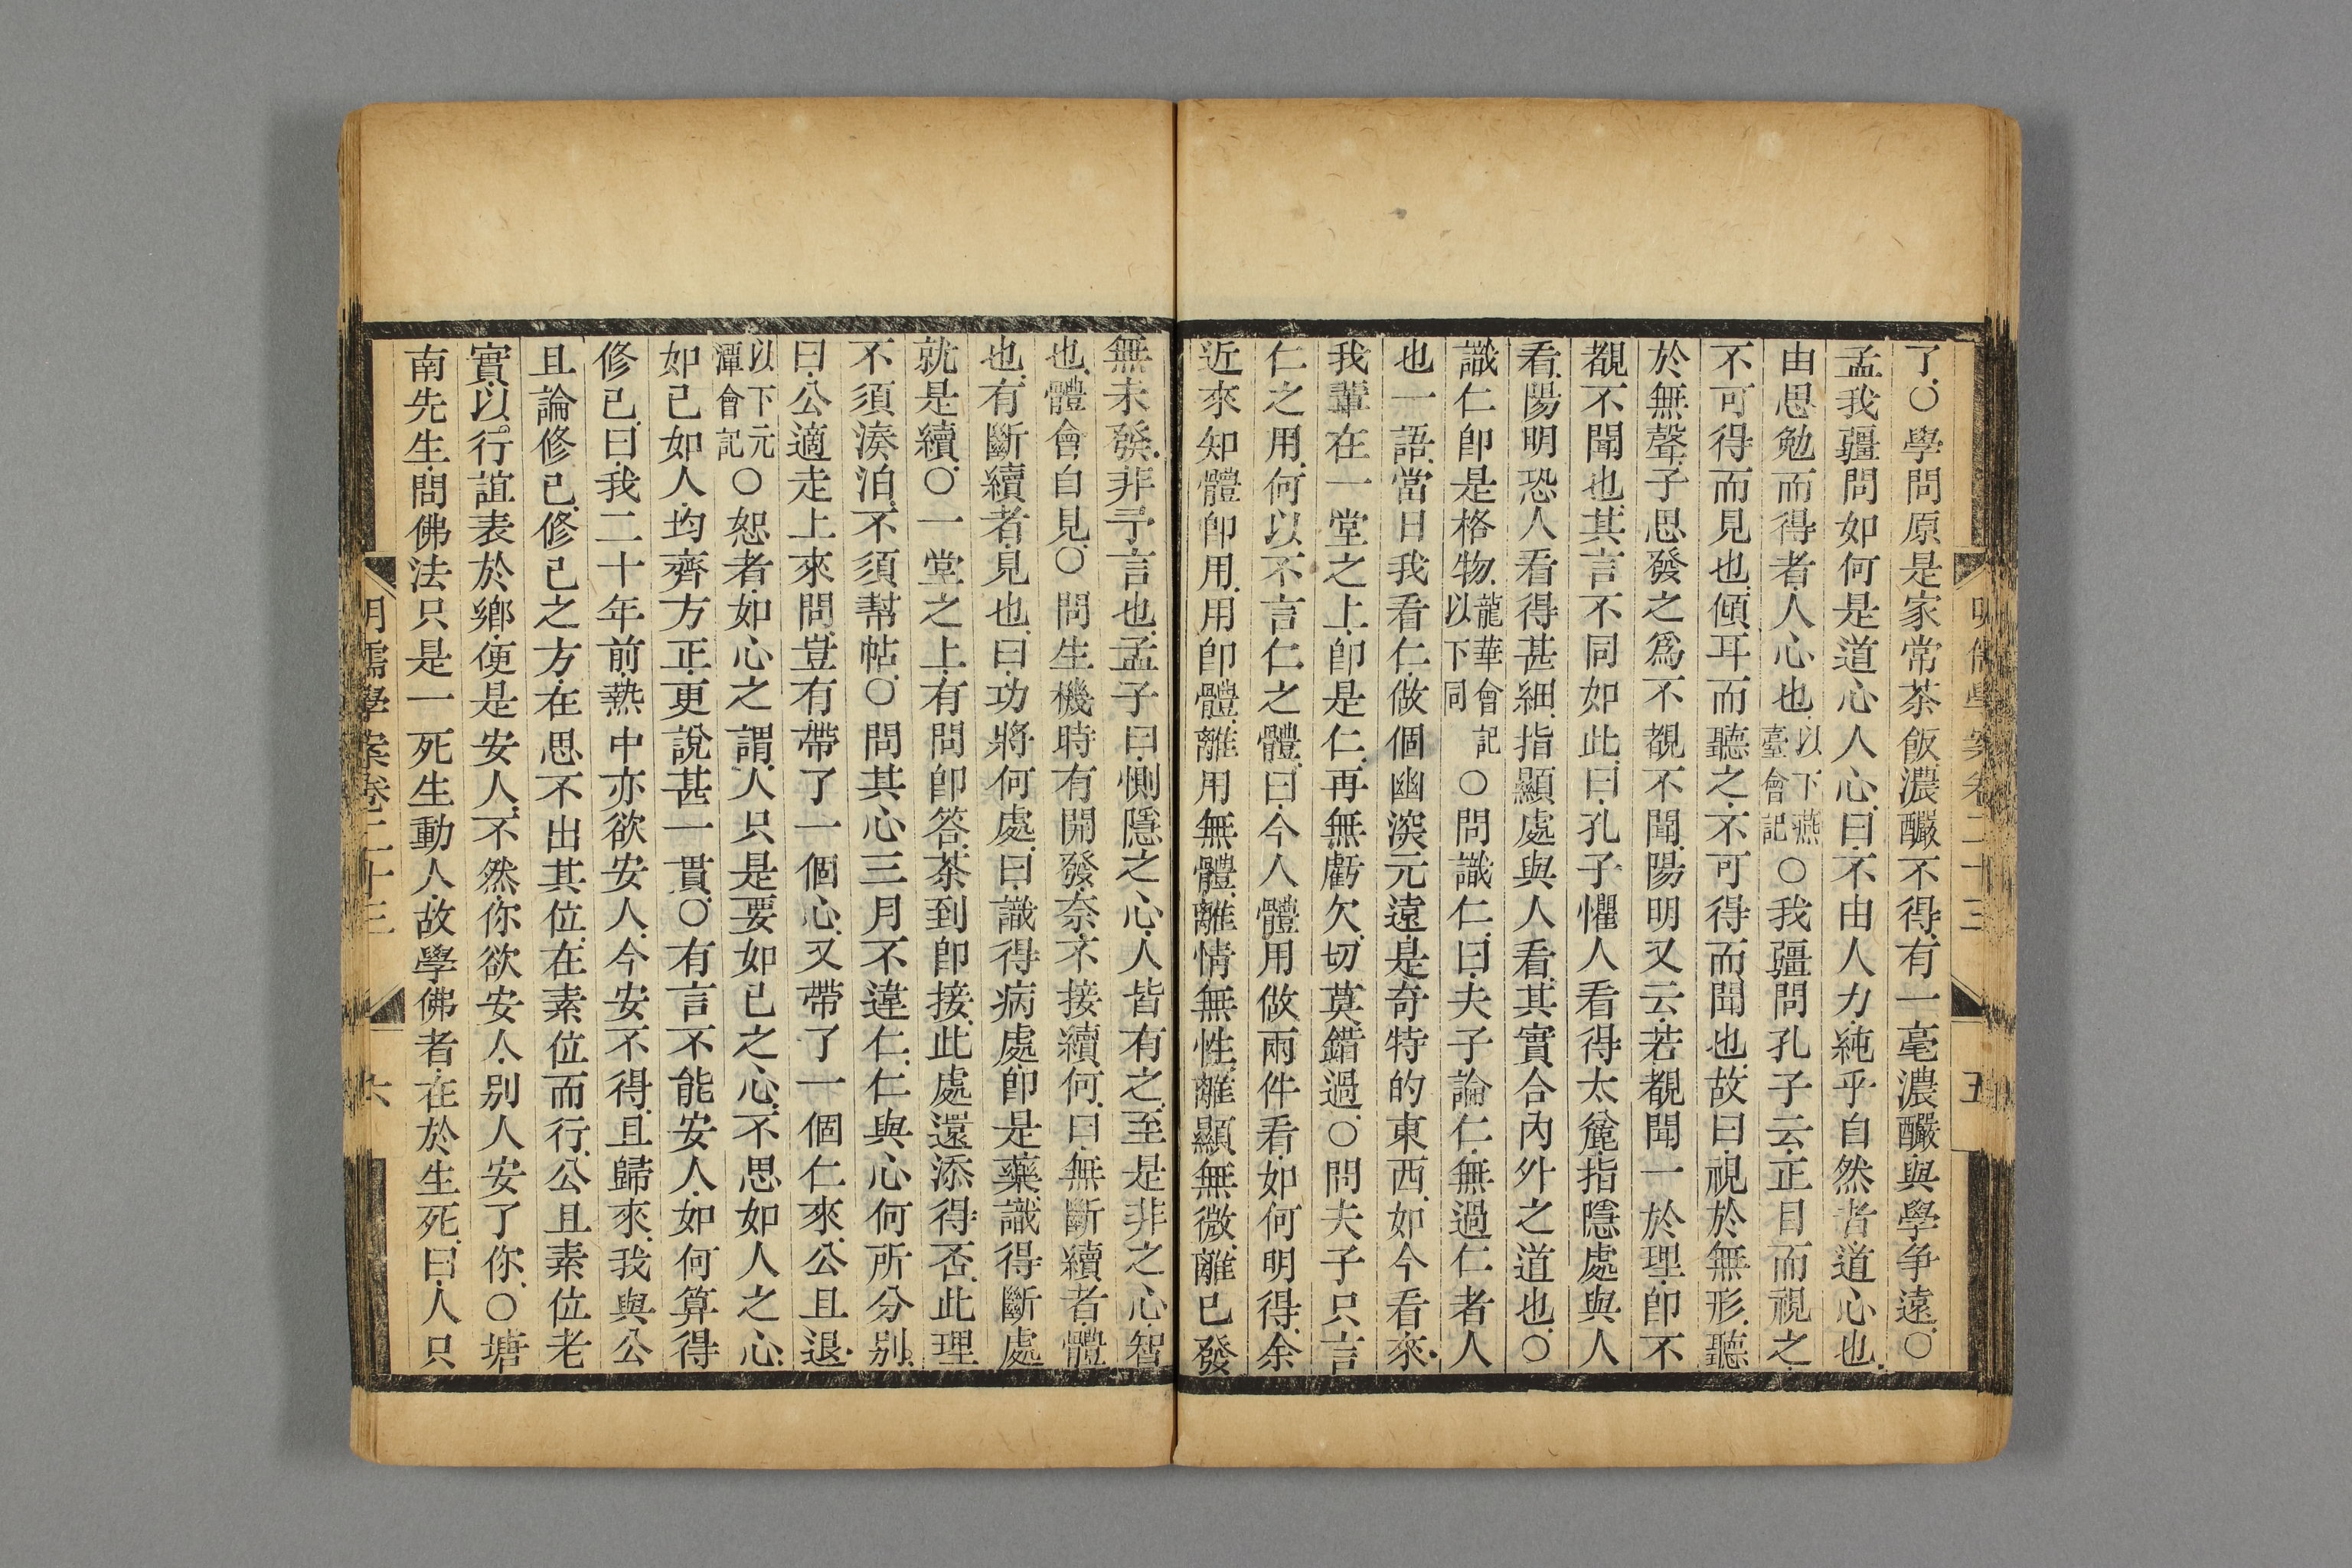 了○學問原是家常茶飯濃釅不得有一毫濃釅與學爭遠○
孟我疆問如何是道心人心曰不由人力純乎自然者道心也
由思勉而得者人心也以下燕臺會記○我疆問孔子云正目而視之
不可得而見也傾耳而聽之不可得而聞也故曰視於無形聽
於無聲子思發之爲不覩不聞陽明又云若覩聞一於理卽不
覩不聞也其言不同如此曰孔子懼人看得太麄指隱處與人
看陽明恐人看得甚細指顯處與人看其實合內外之道也○
識仁卽是格物龍華會記以下同○問識仁曰夫子論仁無過仁者人
也一語當日我看仁做個幽深元遠是奇特的東西如今看來
我輩在一堂之上卽是仁再無虧欠切莫錯過○問夫子只言
仁之用何以不言仁之體曰今人體用做兩件看如何明得余
近來知體卽用用卽體離用無體離情無性離顯無微離已發
無未發非予言也孟子曰惻隱之心人皆有之至是非之心智
也體會自見○問生機時有開發奈不接續何曰無斷續者體
也有斷續者見也曰功將何處曰識得病處卽是藥識得斷處
就是續○一堂之上有問卽答茶到卽接此處還添得否此理
不須湊泊不須幫帖○問其心三月不違仁仁與心何所分別
曰公適走上來問豈有帶了一個心又帶了一個仁來公且退
以下元潭會記○恕者如心之謂人只是要如己之心不思如人之心
如己如人均齊方正更說甚一貫○有言不能安人如何算得
修己曰我二十年前熱中亦欲安人今安不得且歸來我與公
且論修己修己之方在思不出其位在素位而行公且素位老
實以行誼表於鄉便是安人不然你欲安人別人安了你○塘
南先生問佛法只是一死生動人故學佛者在於生死曰人只
明儒學案卷二十三
五
明儒學案卷二十三
六